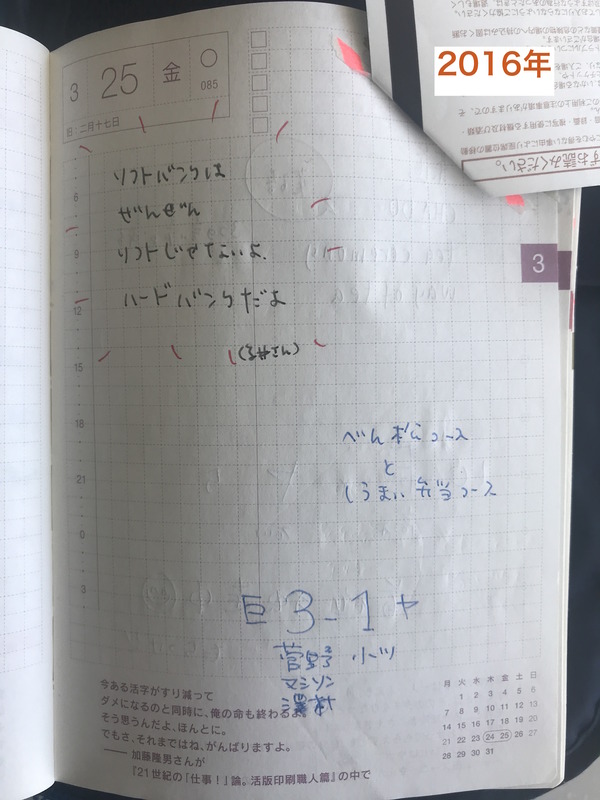 2016年
3 25 金
085
旧：二月十七日
ソフトバンクは
ぜんぜん
ソフトじゃないよ.
ハードバンクだよ
6
9
12
15
18
21
0
3
3
べん松コース
と
しうまい弁当コース
巨 3-1 ヤ
菅野
マシソン
澤村
今ある活字がすり減って
ダメになるのと同時に、俺の命も終わるよ。
そう思うんだよ、ほんとに。
でもさ、それまではね、がんばりますよ。
—— 加藤隆男さんが
『21世紀の「仕事！」論。活版印刷職人篇』の中で
月 火 水 木 金 土 日
1 2 3 4 5 6
7 8 9 10 11 12 13
14 15 16 17 18 19 20
21 22 23 24 25 26 27
28 29 30 31
ずお読みください。